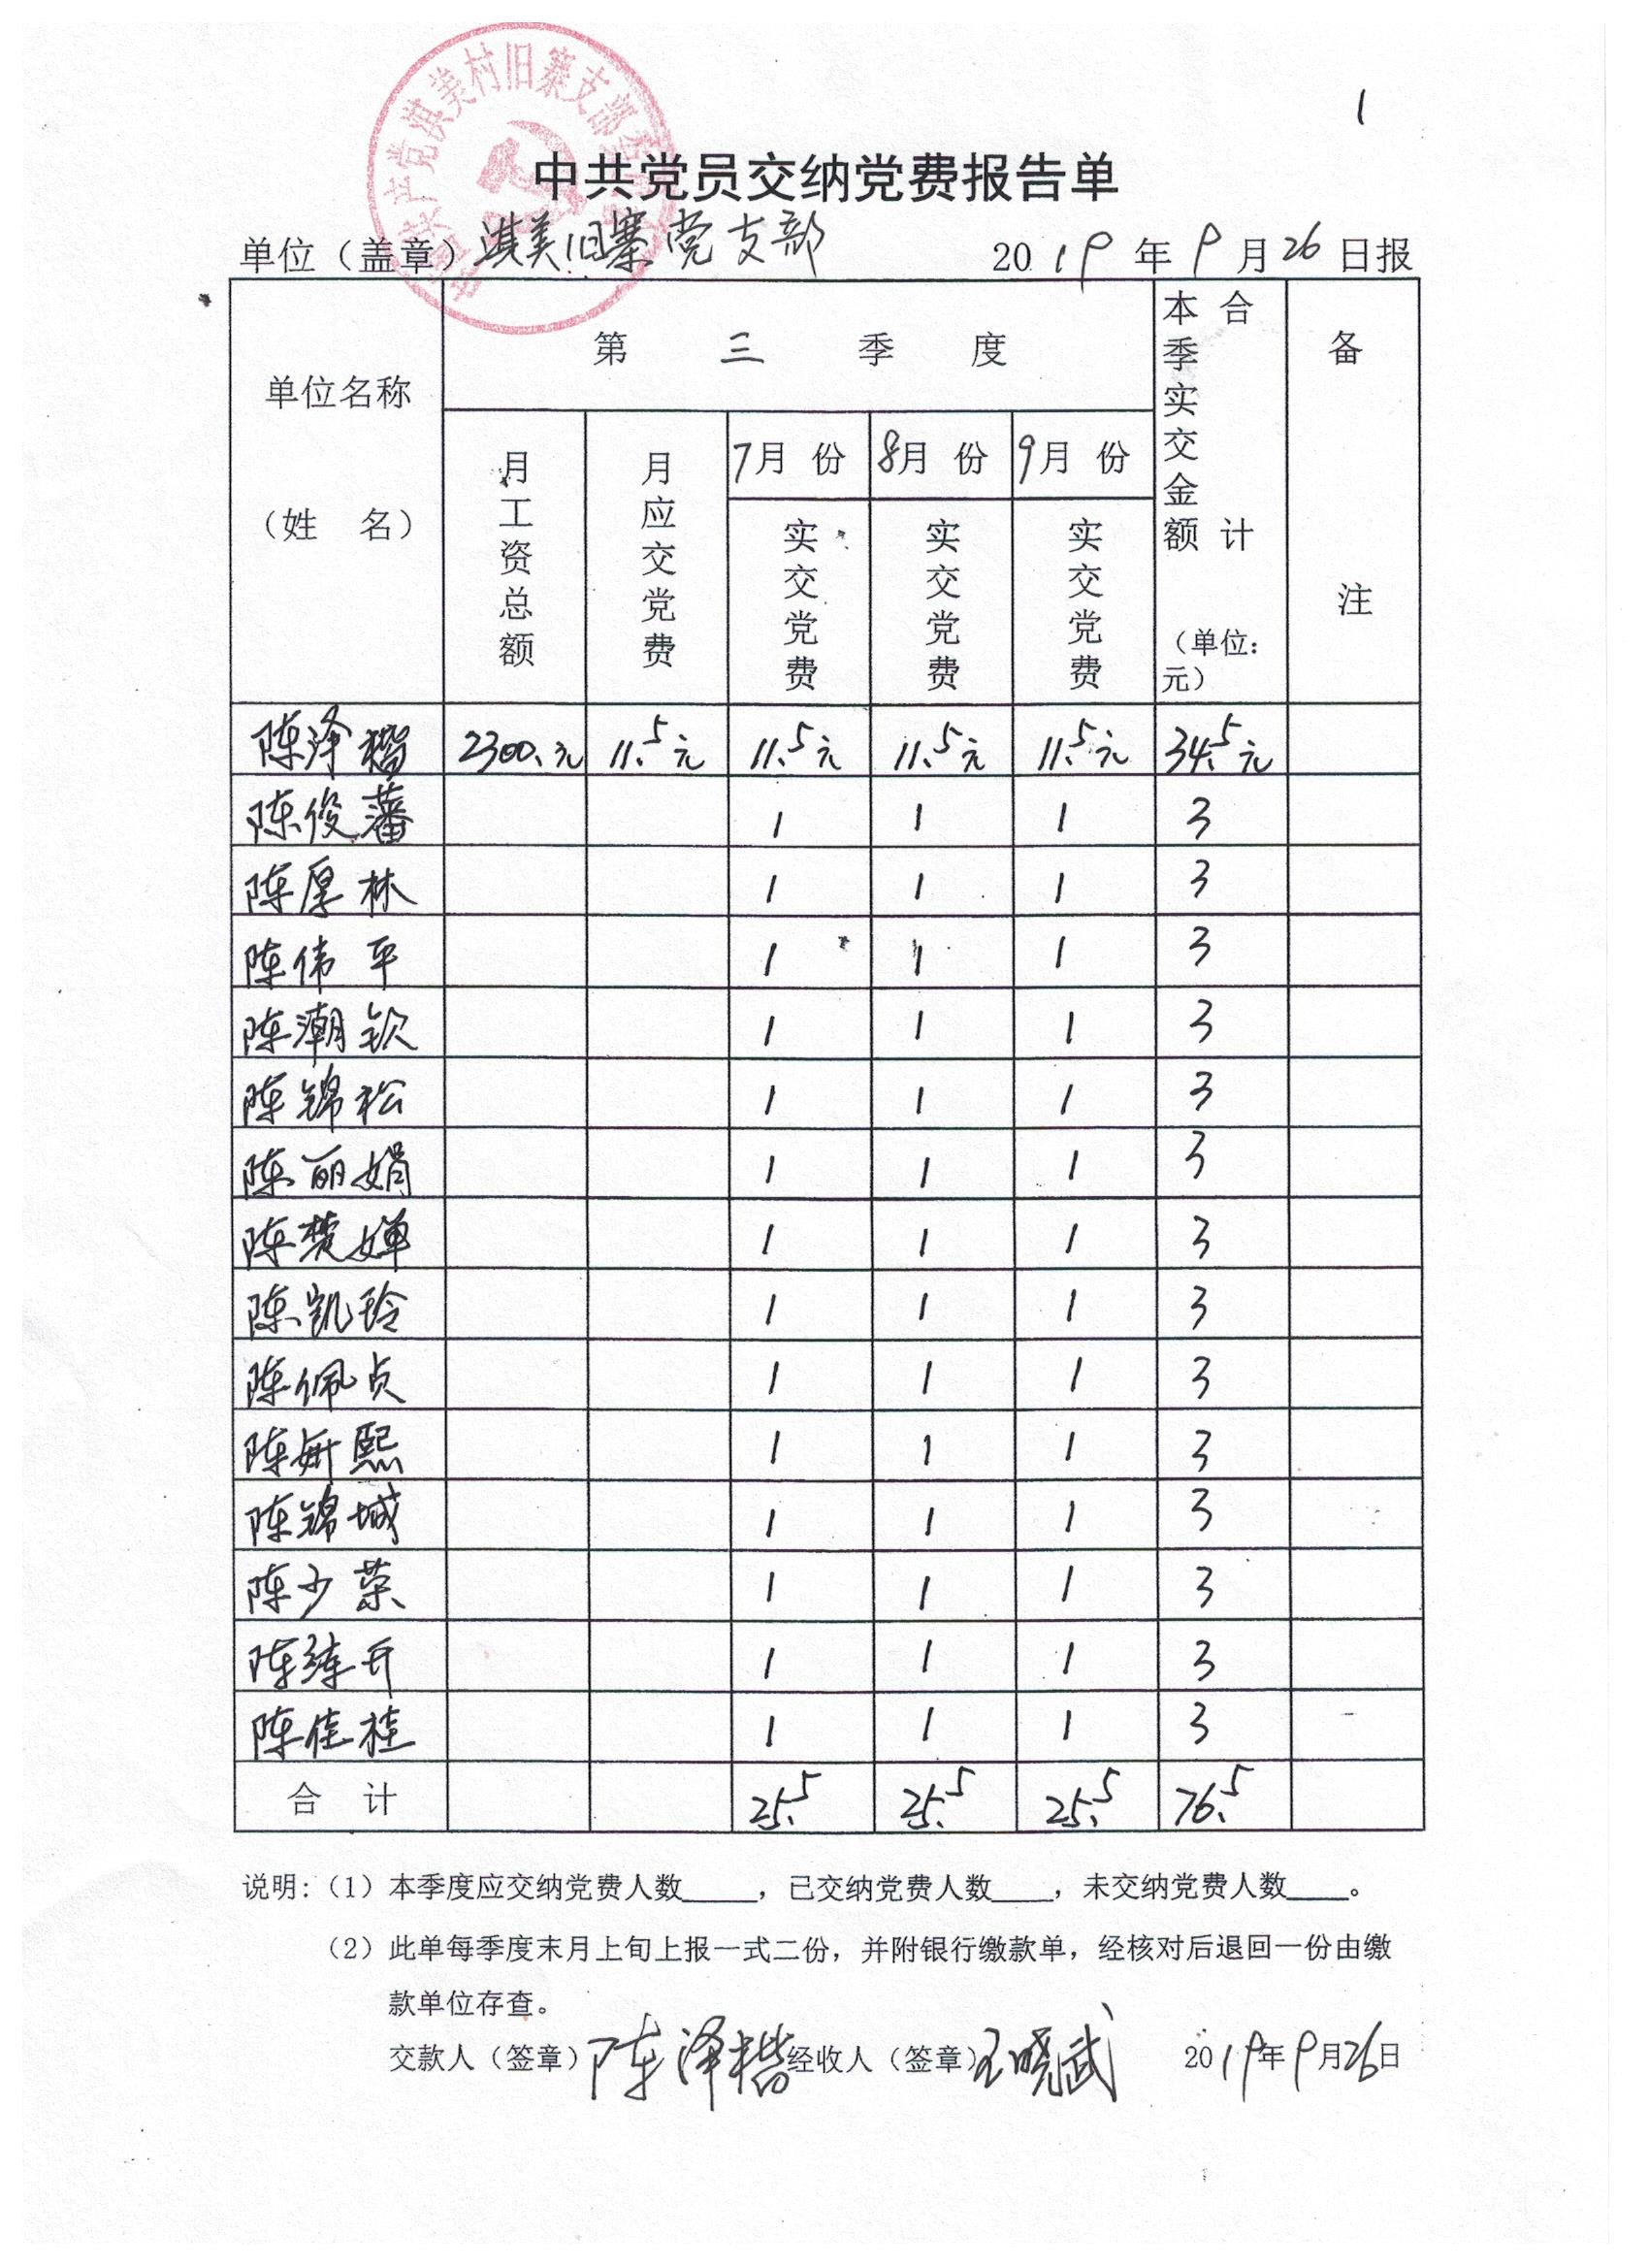 1
中国共产党淇美村旧寨支部委员会
中共党员交纳党费报告单
单位（盖章）淇美旧寨党支部 2019年9月26日报
单位名称（姓 名） 第 三 季 度 本季实交金额合计（单位：元） 备 注
月工资总额 月应交党费 7月 份 8月 份 9月 份
实交党费 实交党费 实交党费
陈泽楷 2300.元 11.5元 11.5元 11.5元 11.5元 34.5元
陈俊藩 1 1 1 3
陈厚林 1 1 1 3
陈伟平 1 1 1 3
陈潮钦 1 1 1 3
陈锦松 1 1 1 3
陈丽娟 1 1 1 3
陈楚婵 1 1 1 3
陈凯玲 1 1 1 3
陈佩贞 1 1 1 3
陈妍熙 1 1 1 3
陈锦城 1 1 1 3
陈少荣 1 1 1 3
陈练升 1 1 1 3
陈佳桂 1 1 1 3
合 计 25.5 25.5 25.5 76.5
说明：（1）本季度应交纳党费人数____，已交纳党费人数____，未交纳党费人数____。
（2）此单每季度末月上旬上报一式二份，并附银行缴款单，经核对后退回一份由缴
款单位存查。
交款人（签章）陈泽楷 经收人（签章）王晓武 2019年9月26日